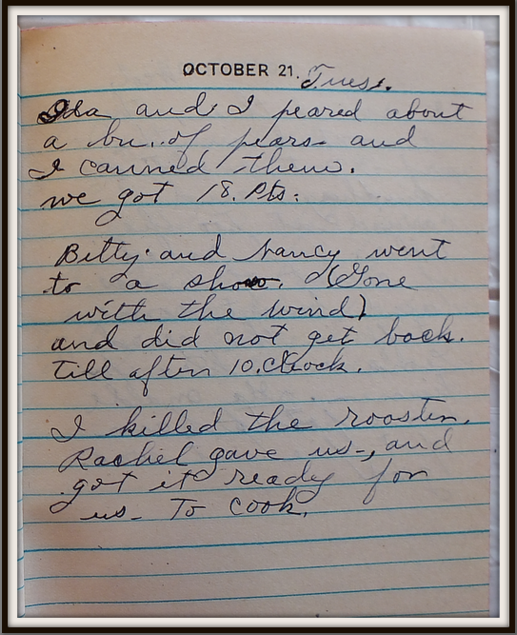 OCTOBER 21. Tues.
Ida and I peared about
a bu. of pears and
I canned them.
we got 18. Pts.
Betty and Nancy went
to a show. (Gone
with the wind)
and did not get back.
Till after 10. Clock.
I killed the rooster.
Rachel gave us-, and
got it ready for
us- To cook.